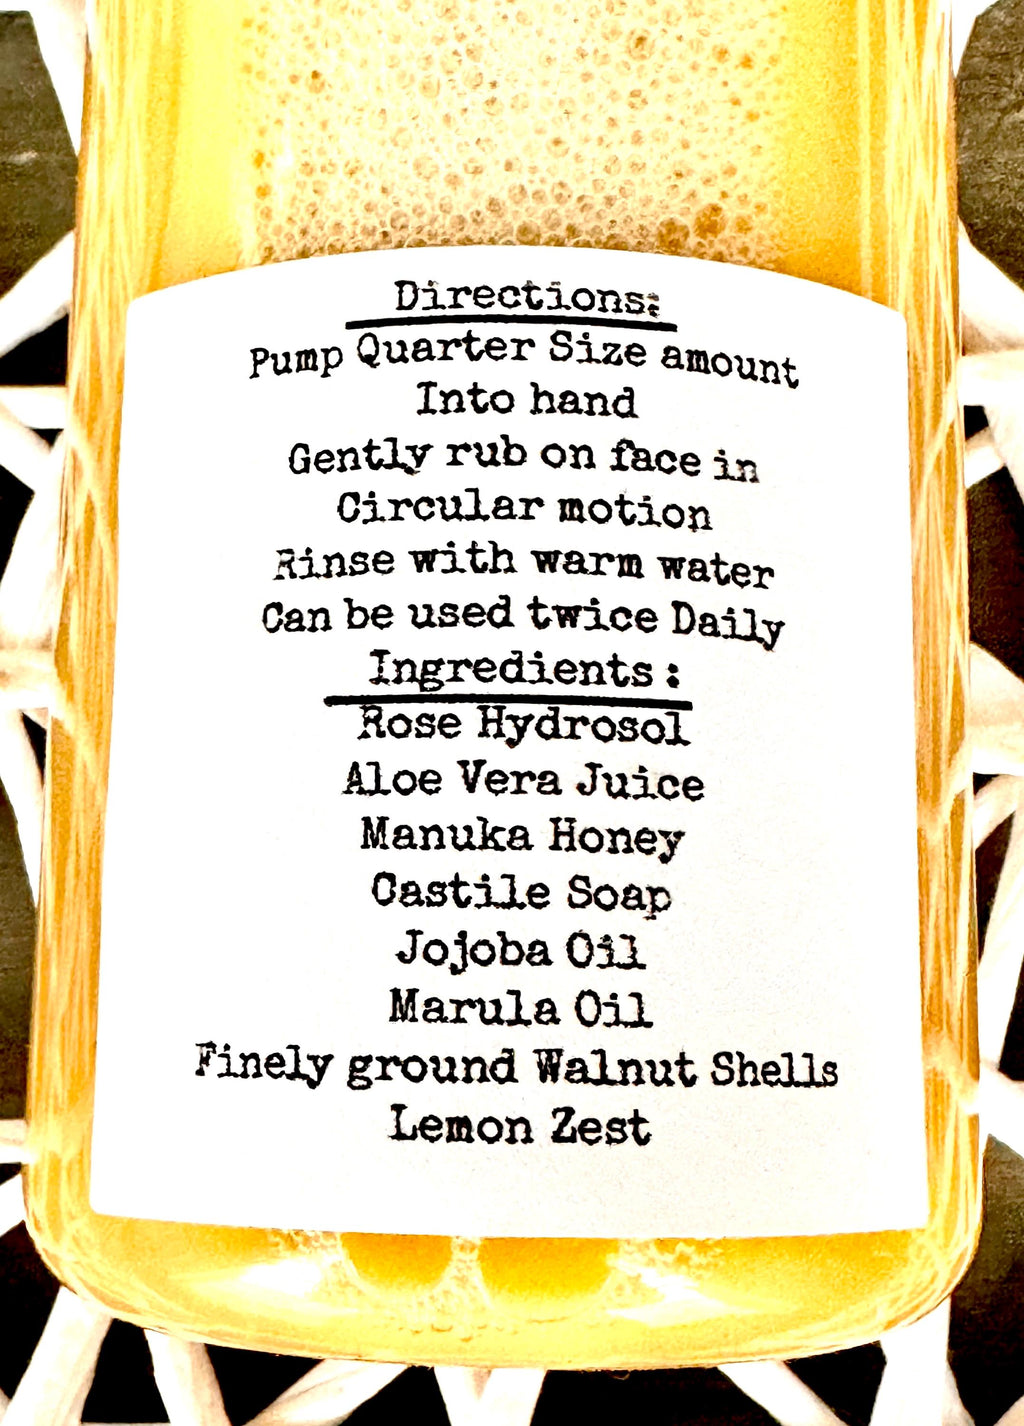 Directions:
Pump Quarter Size amount
Into hand
Gently rub on face in
Circular motion
Rinse with warm water
Can be used twice Daily
Ingredients:
Rose Hydrosol
Aloe Vera Juice
Manuka Honey
Castile Soap
Jojoba Oil
Marula Oil
Finely ground Walnut Shells
Lemon Zest